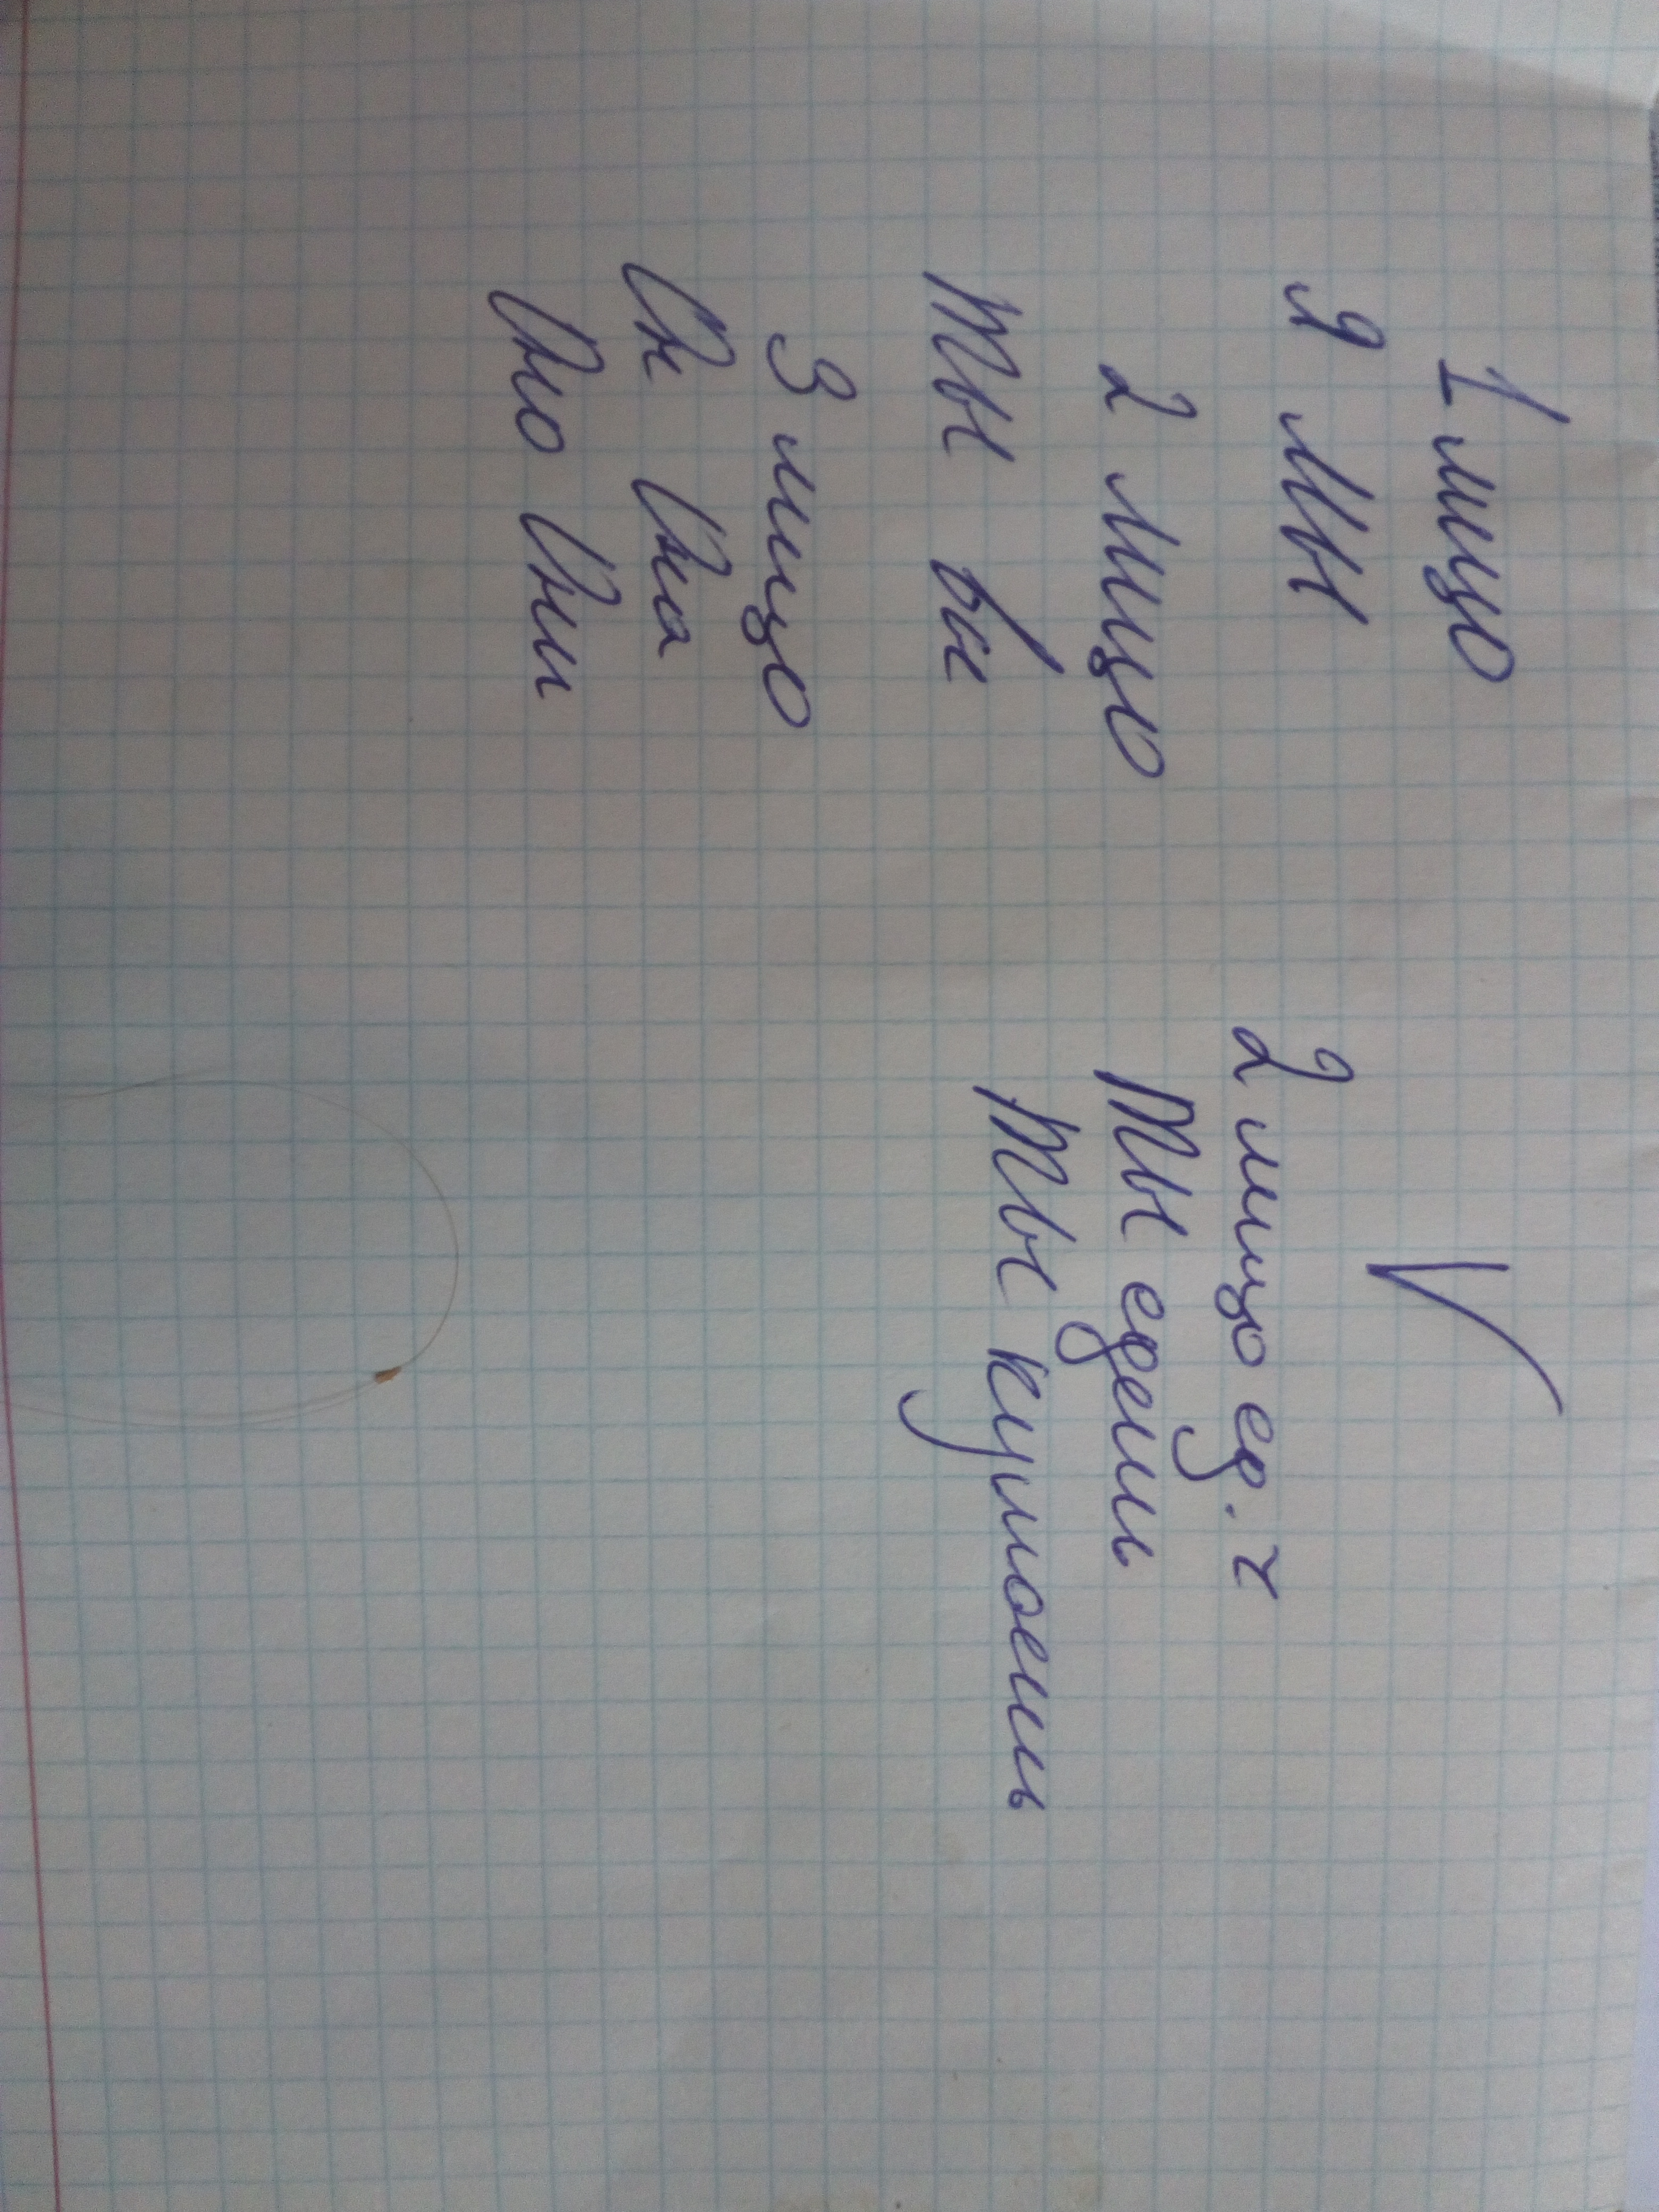 1 лицо
я мы
2 лицо
ты вы
3 лицо
Он Она
Оно Они
V
2 лицо ед. ч
ты едешь
ты куляешь